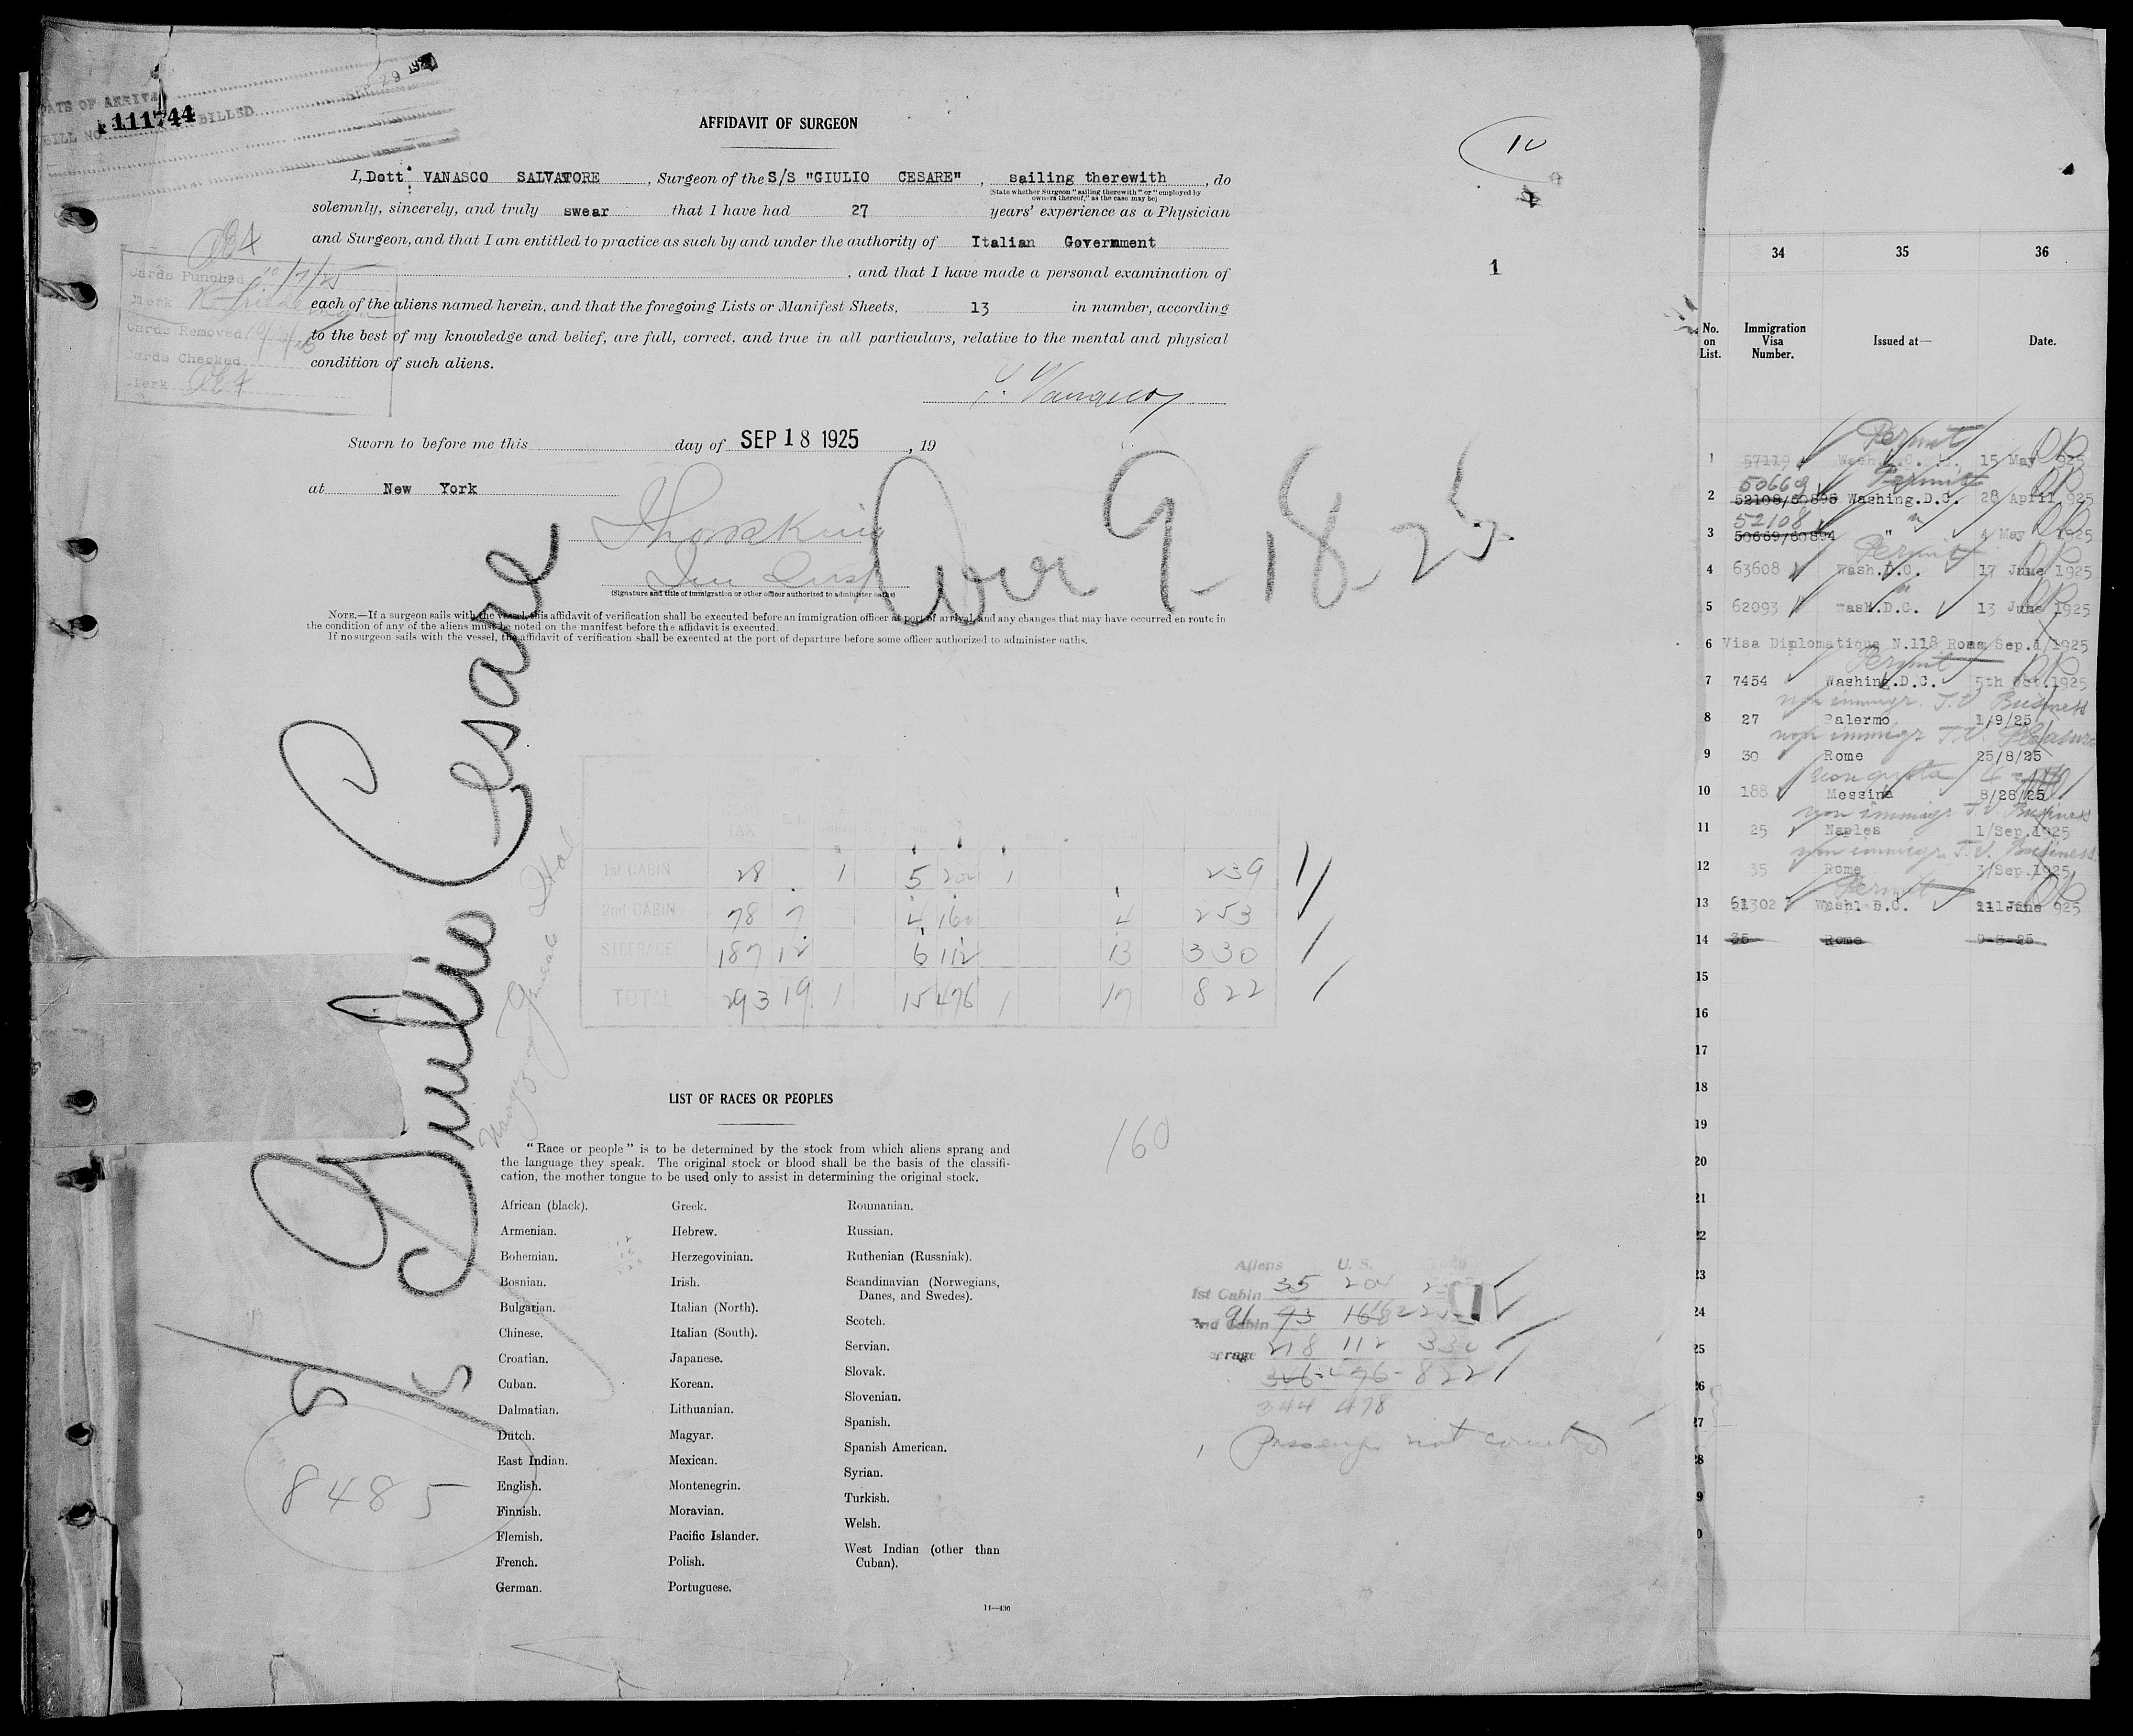 DATE OF ARRIVAL
BILL NO. 111744 BILLED SEP 29
AFFIDAVIT OF SURGEON
10
I, Dott. VANASCO SALVATORE, Surgeon of the S/S "GIULIO CESARE", sailing therewith, do
(State whether Surgeon "sailing therewith" or "employed by
owners thereof," as the case may be)
solemnly, sincerely, and truly swear that I have had 27 years' experience as a Physician
and Surgeon, and that I am entitled to practice as such by and under the authority of Italian Government
, and that I have made a personal examination of
1
each of the aliens named herein, and that the foregoing Lists or Manifest Sheets, 13 in number, according
to the best of my knowledge and belief, are full, correct, and true in all particulars, relative to the mental and physical
condition of such aliens.
Cards Punched 10/7/25
Clerk
Cards Removed
Cards Checked
Clerk
S. Vanasco
Sworn to before me this day of SEP 18 1925, 19
at New York
9-18-25
(Signature and title of immigration or other officer authorized to administer oaths)
NOTE.—If a surgeon sails with the vessel, this affidavit of verification shall be executed before an immigration officer at port of arrival and any changes that may have occurred en route in
the condition of any of the aliens must be noted on the manifest before the affidavit is executed.
If no surgeon sails with the vessel, the affidavit of verification shall be executed at the port of departure before some officer authorized to administer oaths.
S/S Giulio Cesare
TAX
1st CABIN 28 1 5 202 1 239
2nd CABIN 78 7 4 160 4 253
STEERAGE 187 12 6 112 13 330
TOTAL 293 19 1 15 476 1 17 822
LIST OF RACES OR PEOPLES
160
"Race or people" is to be determined by the stock from which aliens sprang and
the language they speak. The original stock or blood shall be the basis of the classifi-
cation, the mother tongue to be used only to assist in determining the original stock.
African (black).
Armenian.
Bohemian.
Bosnian.
Bulgarian.
Chinese.
Croatian.
Cuban.
Dalmatian.
Dutch.
East Indian.
English.
Finnish.
Flemish.
French.
German.
Greek.
Hebrew.
Herzegovinian.
Irish.
Italian (North).
Italian (South).
Japanese.
Korean.
Lithuanian.
Magyar.
Mexican.
Montenegrin.
Moravian.
Pacific Islander.
Polish.
Portuguese.
Roumanian.
Russian.
Ruthenian (Russniak).
Scandinavian (Norwegians,
Danes, and Swedes).
Scotch.
Servian.
Slovak.
Slovenian.
Spanish.
Spanish American.
Syrian.
Turkish.
Welsh.
West Indian (other than
Cuban).
8485
Aliens U. S.
1st Cabin 35 204
2nd Cabin 91 93
erage 218 112 330
346 - 476 - 822
344 478
1 Passenger not counted
14—430
34 35 36
No. on List. Immigration Visa Number. Issued at— Date.
Permit OK
1 57119 Wash.D.C. 15 May 1925
50669 Permit OK
2 52108/60895 Washing.D.C. 28 April 925
52108 " OK
3 50669/60894 " 4 May 1925
Permit OK
4 63608 Wash.D.C. 17 June 1925
" OK
5 62093 Wash.D.C. 13 June 1925
6 Visa Diplomatique N.118 Rome Sep.1/1925
Permit OK
7 7454 Washing.D.C. 5th Oct.1925
non immigr. T.V. Business
8 27 Palermo 1/9/25
non immigr T.V. Pleasure
9 30 Rome 25/8/25
non quota 4
10 188 Messina 8/28/25
non immigr T.V. Business
11 25 Naples 1/Sep.1925
non immigr. T.V. Business
12 35 Rome 1/Sep.1925
Permit OK
13 61302 Wash. D.C. 11 June 925
14 35 Rome 9-3-25
15
16
17
18
19
20
21
22
23
24
25
26
27
28
9
0